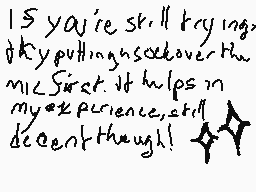 If you're still trying,
try putting a sock over the
mic first. It helps in
my experience, still
decent though!